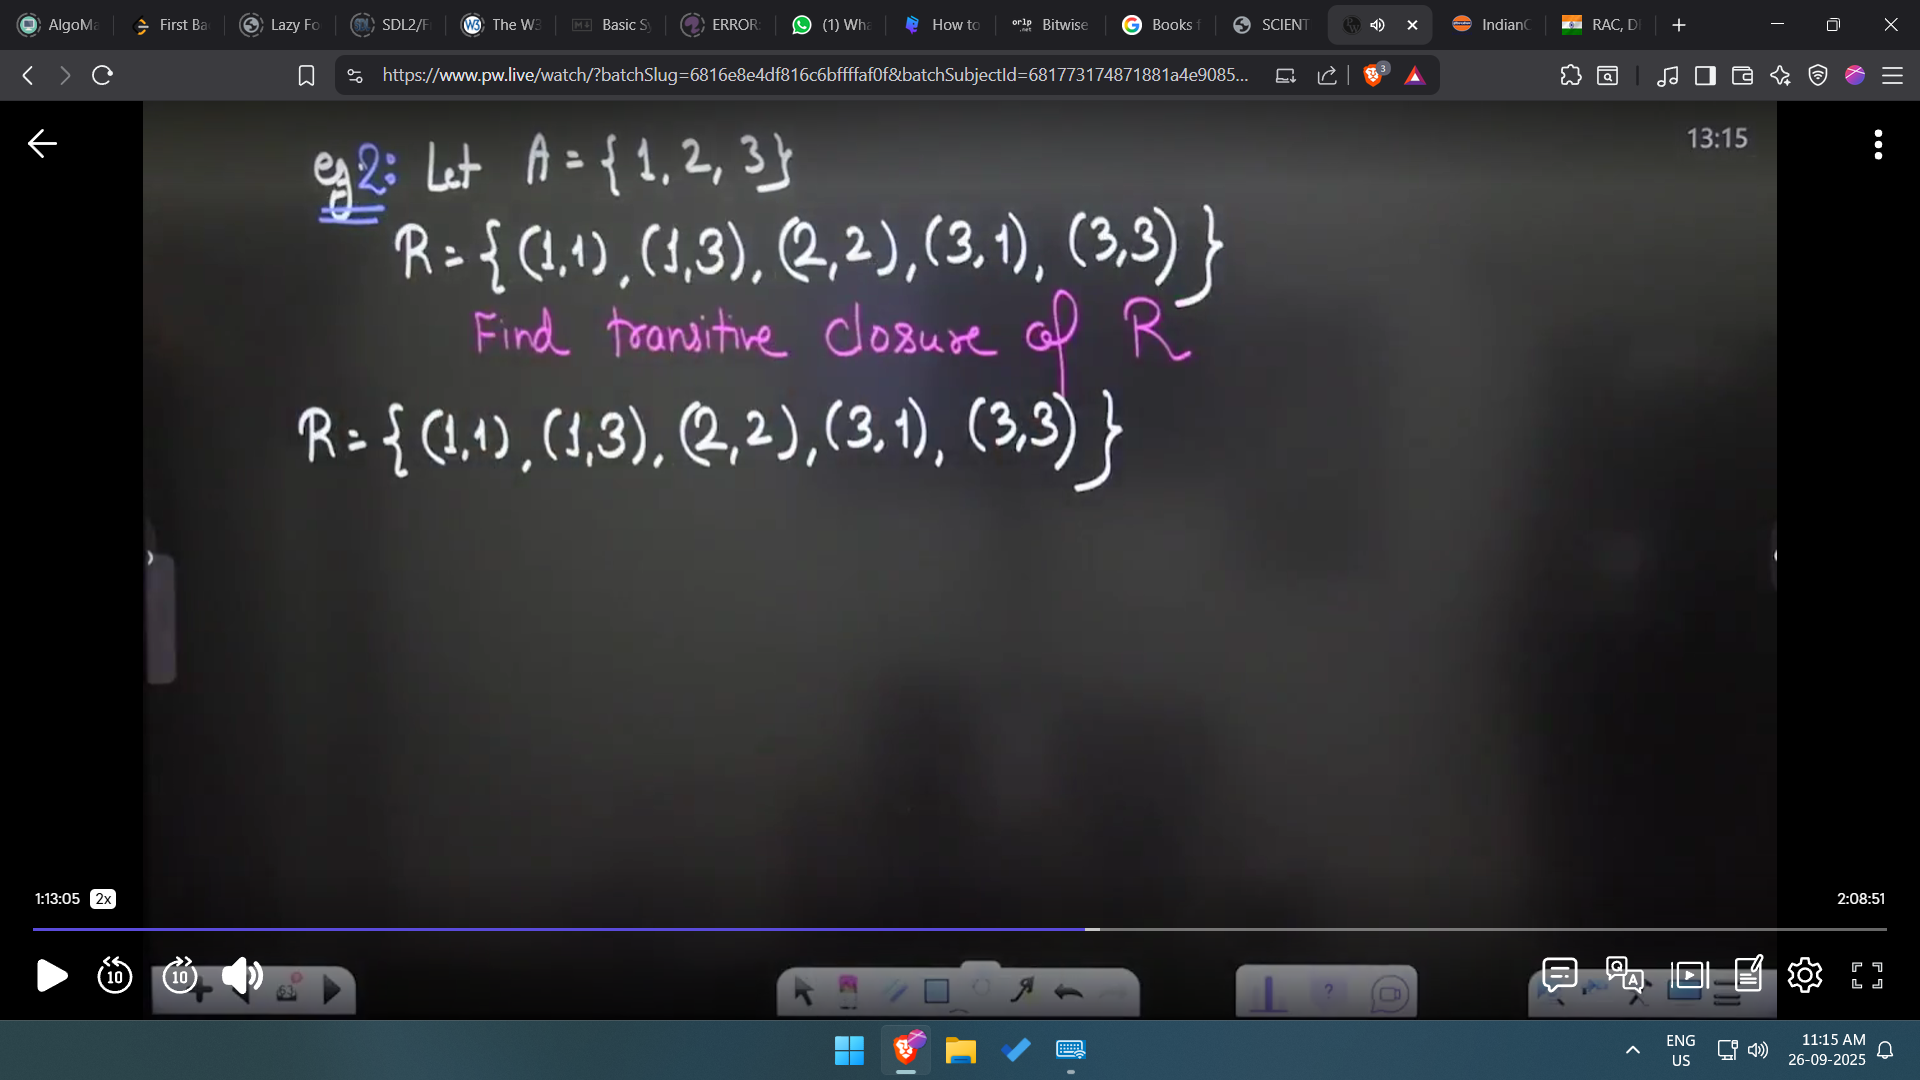 AlgoMa
First Ba
Lazy Fo
SDL2/F
The W3
Basic Sy
ERROR:
(1) Wha
How to
Bitwise
Books f
SCIENT
IndianC
RAC, D
https://www.pw.live/watch/?batchSlug=6816e8e4df816c6bffffaf0f&batchSubjectId=681773174871881a4e9085...
3
13:15
eg2: Let A = { 1, 2, 3}
R = { (1,1), (1,3), (2,2), (3,1), (3,3) }
Find transitive closure of R
R = { (1,1), (1,3), (2,2), (3,1), (3,3) }
1:13:05 2x
2:08:51
10
10
63
?
ENG
US
11:15 AM
26-09-2025